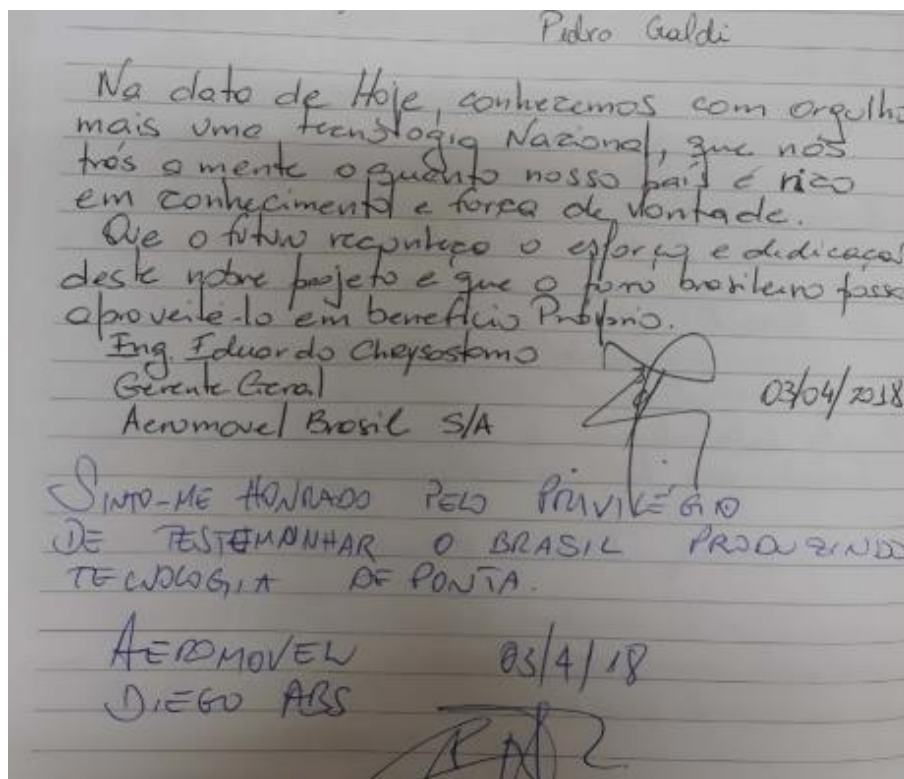 Pedro Galdi
Na data de Hoje, conhecemos com orgulho
mais uma tecnologia Nacional, que nós
trás a mente o quanto nosso país é rico
em conhecimento e força de vontade.
Que o futuro reconheça o esforço e dedicação
deste nobre projeto e que o povo brasileiro possa
aproveitá-lo em benefício Próprio.
Eng. Eduardo Chrysostomo
Gerente Geral
03/04/2018
Aeromovel Brasil S/A
SINTO-ME HONRADO PELO PRIVILÉGIO
DE TESTEMUNHAR O BRASIL PRODUZINDO
TECNOLOGIA DE PONTA.
AEROMOVEL 03/4/18
DIEGO ABS